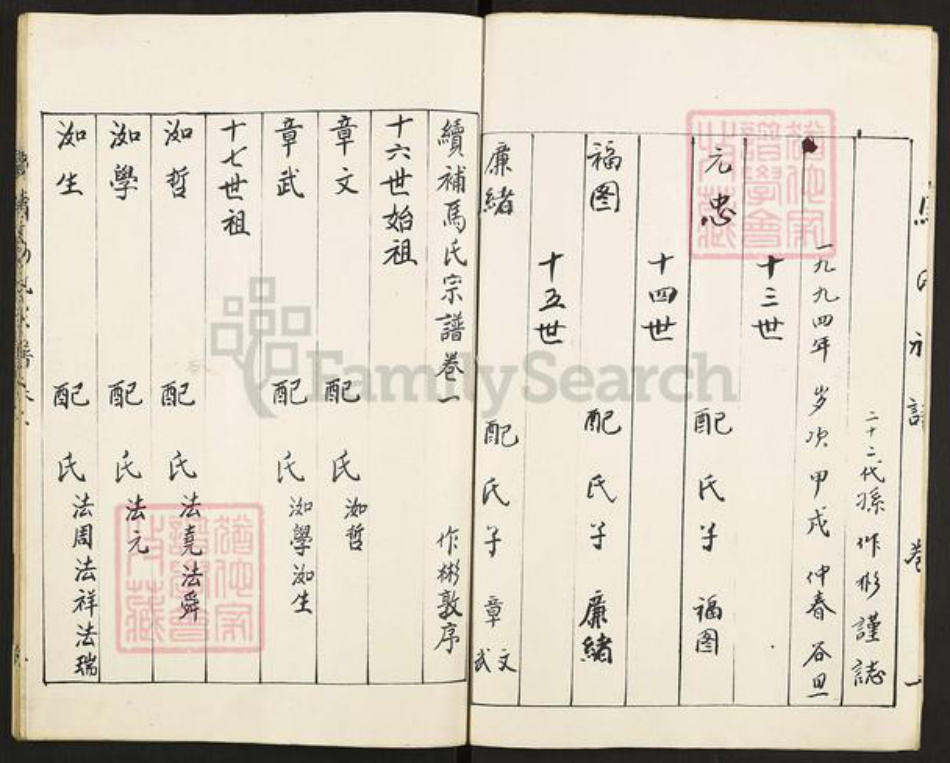 二十二代孫作彬謹誌
一九九四年岁次甲戌仲春谷旦
十三世
元忠 配 氏 子 福图
十四世
福图 配 氏 子 廉緒
十五世
廉緒 配 氏 子 章文武
續補馬氏宗譜卷一 作彬敦序
十六世始祖
章文 配 氏 洳哲
章武 配 氏 洳學洳生
十七世祖
洳哲 配 氏 法堯法舜
洳學 配 氏 法元
洳生 配 氏 法周法祥法瑞
FamilySearch